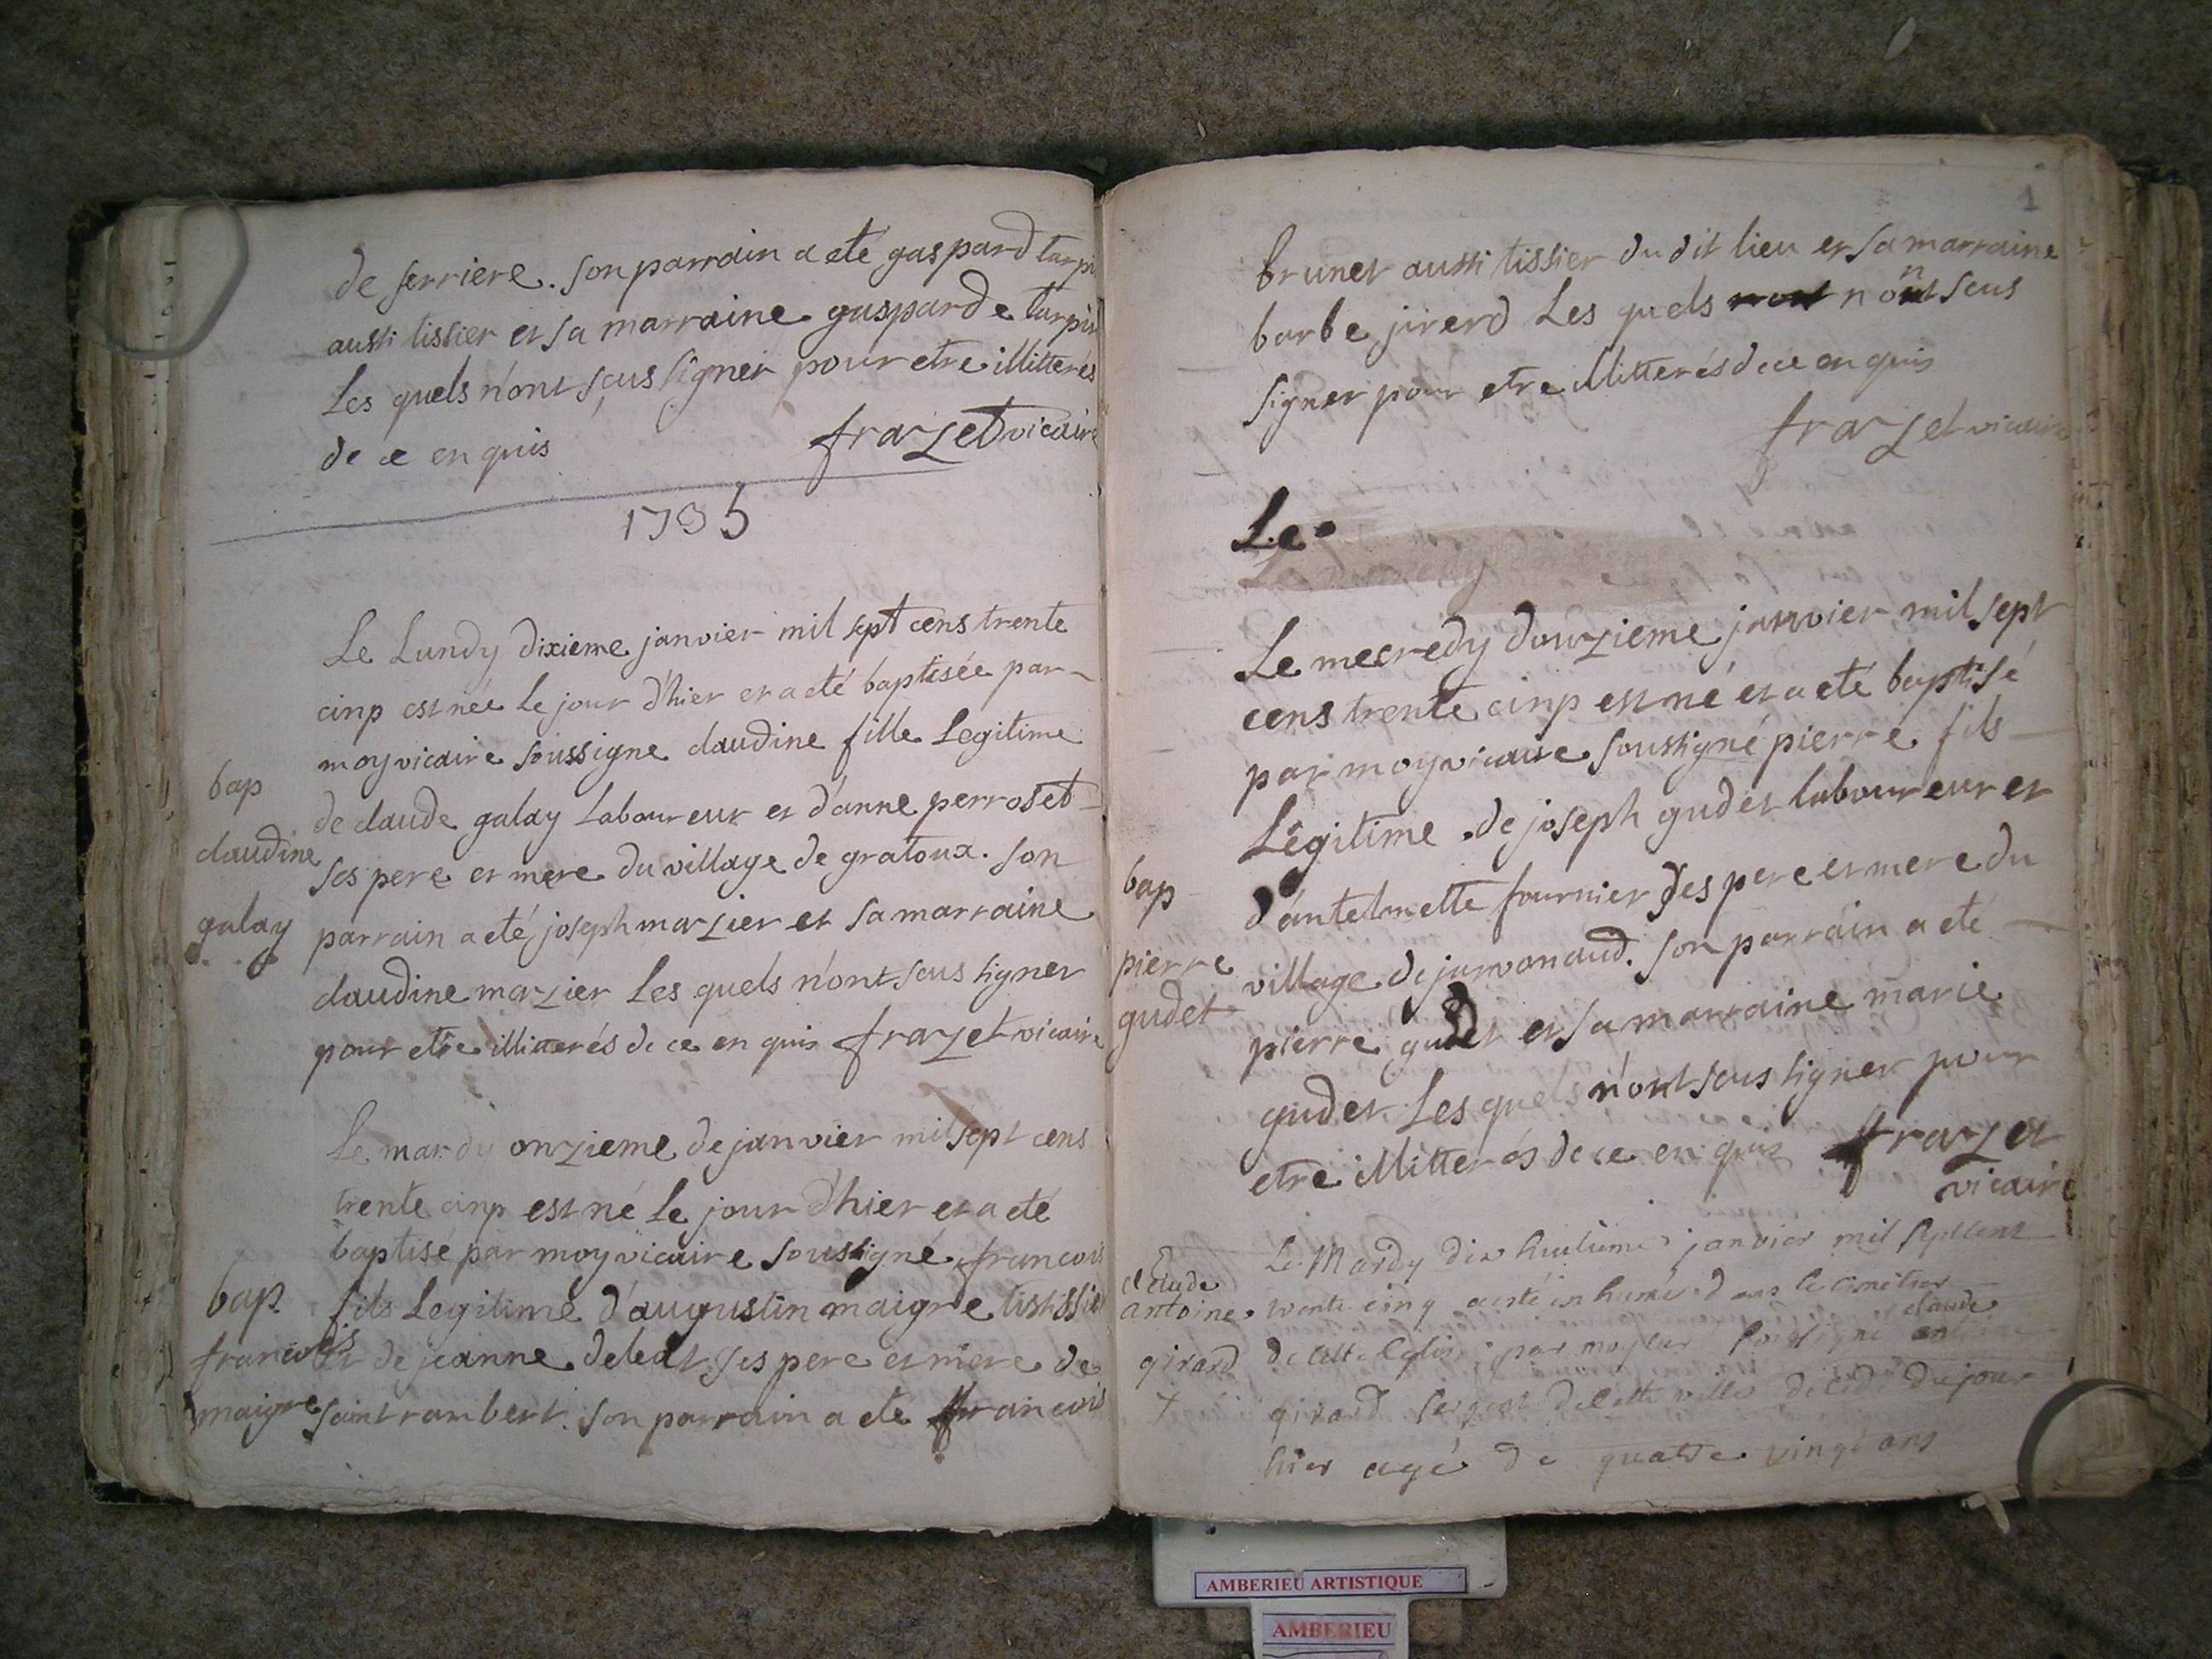 de serriere. son parrain a eté gaspard
aussi tissier et sa marraine gasparde
Les quels n'ont sçus signer pour etre illitterés
de ce en quis frazet vicaire
1735
Le Lundy dixieme janvier mil sept cens trente
cinp est née Le jour d'hier et a eté baptisée par
moy vicaire soussigne claudine fille Legitime
bap
de claude galay Laboureur et d'anne perroset
claudine
ses pere et mere du village de gratoux. son
galay
parrain a eté joseph mazier et sa marraine
claudine mazier Les quels n'ont sçus signer
pour etre illitterés de ce en quis frazet vicaire
Le mardy onzieme de janvier mil sept cens
trente cinp est né Le jour d'hier et a eté
baptisé par moy vicaire soussigné francois
bap.
fils Legitime d'augustin maigre
francois
et de jeanne deleat ses pere et mere de
maigre
saint rambert. son parrain a eté francois
1
brunet aussi tissier du dit lieu et sa marraine
barbe jirerd Les quels n'ont sçus
signer pour etre illitterés de ce en quis
frazet vicaire
Le
Le mecredy douzieme janvier mil sept
cens trente cinp est né et a eté baptisé
par moy vicaire soussigné pierre fils
Legitime de joseph gudet laboureur et
bap
d'antelmette fournier ses pere et mere du
pierre
village de jarvonaud. son parrain a eté
gudet
pierre gudet et sa marraine marie
gudet Les quels n'ont sçus signer pour
etre illitterés de ce en quis frazet
vicaire
Le Mardy dix huitieme janvier mil sept cent
claude
antoine
trente cinq a esté inhumé dans le cimetier
claude
girard
de cette Eglise par moy soussigné
+
girard sergent de cette ville décédé du jour
hier agé de quatre vingt ans
AMBERIEU ARTISTIQUE
AMBERIEU